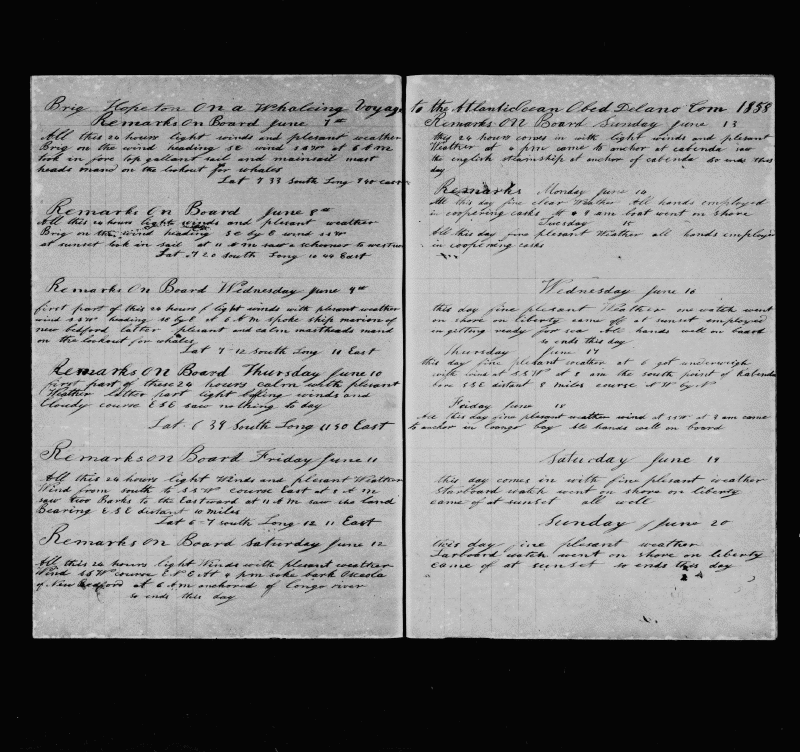 Brig Hopeton On a Whaleing Voyage
Remarks On Board June 7th
All this 24 hours light winds and plesant weather
Brig on the wind heading SE wind SSW at 6 A M
took in fore top gallant sail and mainsail mast
heads mand on the lookout for whales
Lat 7 33 South Long 9 40 east
Remarks On Board June 8th
All this 24 hours light winds and plesant weather
Brig on the wind heading SE by E wind SSW
at sunset tok in sail at 11 A M saw a schorner to westward
Lat 7 20 South Long 10 44 East
Remarks On Board Wednesday June 9th
first part of this 24 hours light winds with plesant weather
wind SSW heading at 6 A M spoke ship marion of
new bedford latter plesant and calm mastheads mand
on the lookout for whales
Lat 7-12 South Long 11 East
Remarks On Board Thursday June 10
first part of these 24 hours calm with plesant
Weather latter part light winds and
Cloudy course ESE saw nothing to day
Lat 6 39 South Long 11 50 East
Remarks On Board Friday June 11
All this 24 hours light Winds and plesant Weather
Wind from south to SSW course East at 8 A M
saw two Barks to the Eastward at 11 A M saw the land
Bearing ESE distant 10 miles
Lat 6-7 south Long 12 11 East
Remarks On Board Saturday June 12
All this 24 hours light Winds with plesant weather
Wind SSW course ENE At 4 pm spoke bark Osceola
of New Bedford at 6 Am anchored of Congo river
so ends this day
to the Atlantic Ocean Obed Delano Com 1858
Remarks ON Board Sunday June 13
this 24 hours comes in with light winds and plesant
Weather at 4 pm came to anchor at cabenda saw
the english steamship at anchor of cabenda so ends this
day
Remarks Monday June 14
All this day fine clear Weather All hands employed
in coopering casks At 9 am boat went on shore
Tuesday 15
All this day fine plesant Weather all hands employed
in coopering casks
Wednesday June 16
this day fine plesant Weather one watch went
on shore on liberty came off at sunset employed
in getting ready for sea all hands well on board
so ends this day
Thursday June 17
this day fine plesant weather at 6 got underweigh
with wind at SSW at 8 am the south point of Kabenda
bore ESE distant 8 miles course NW by N
Friday June 18
All this day fine plesant weather wind at SSW at 8 am came
to anchor in loango bay All hands well on board
Saturday June 19
this day comes in with fine plesant weather
Starboard watch went on shore on liberty
came of at sunset all well
Sunday June 20
this day fine plesant weather
Larboard watch went on shore on liberty
came of at sunset so ends this day